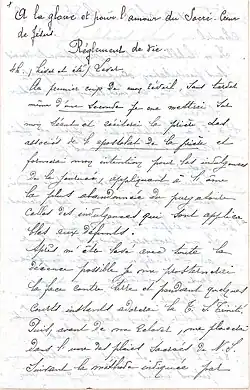 A la gloire et pour l'amour du Sacré-Coeur
de Jésus.
Règlement de vie.
4h. (hiver et été) Lever.
Au premier coup de mon réveil, sans tarder
même d'une seconde je me mettrai sur
mon séant et réciterai la prière des
associés de l'apostolat de la prière et
formerai mon intention pour les indulgences
de la journée, appliquant à l'âme
la plus abandonnée du purgatoire
celles des indulgences qui sont applica-
bles aux défunts.
Après m'être levé avec toute la
décence possible je me prosternerai
la face contre terre et pendant quelques
courts instants adorerai la T. S. Trinité.
Puis, avant de me, me placerai
dans l'une des plaies sacrées de N. S.
suivant la méthode indiquée par